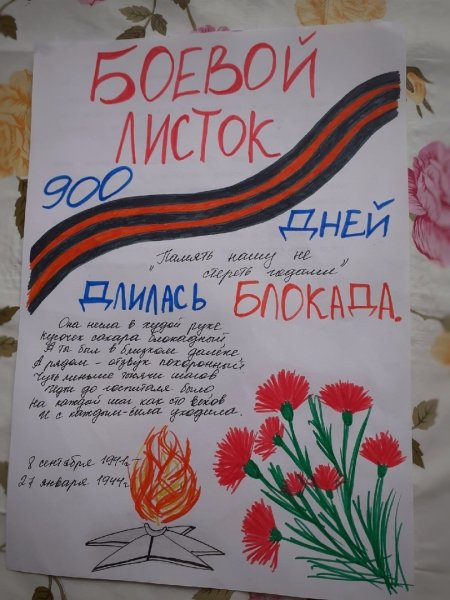 БОЕВОЙ
ЛИСТОК
900
ДНЕЙ
"Память нашу не
стереть годами"
ДЛИЛАСЬ БЛОКАДА.
Она несла в худой руке
Кусочек сахара блокадный
А та был в близком далеке,
А рядом - отзвук похоронный.
Чуть меньше тысячи шагов
Идти до госпиталя было
На каждый шаг как сто веков
И с каждым-сила уходила.
8 сентября 1941г. -
27 января 1944г.